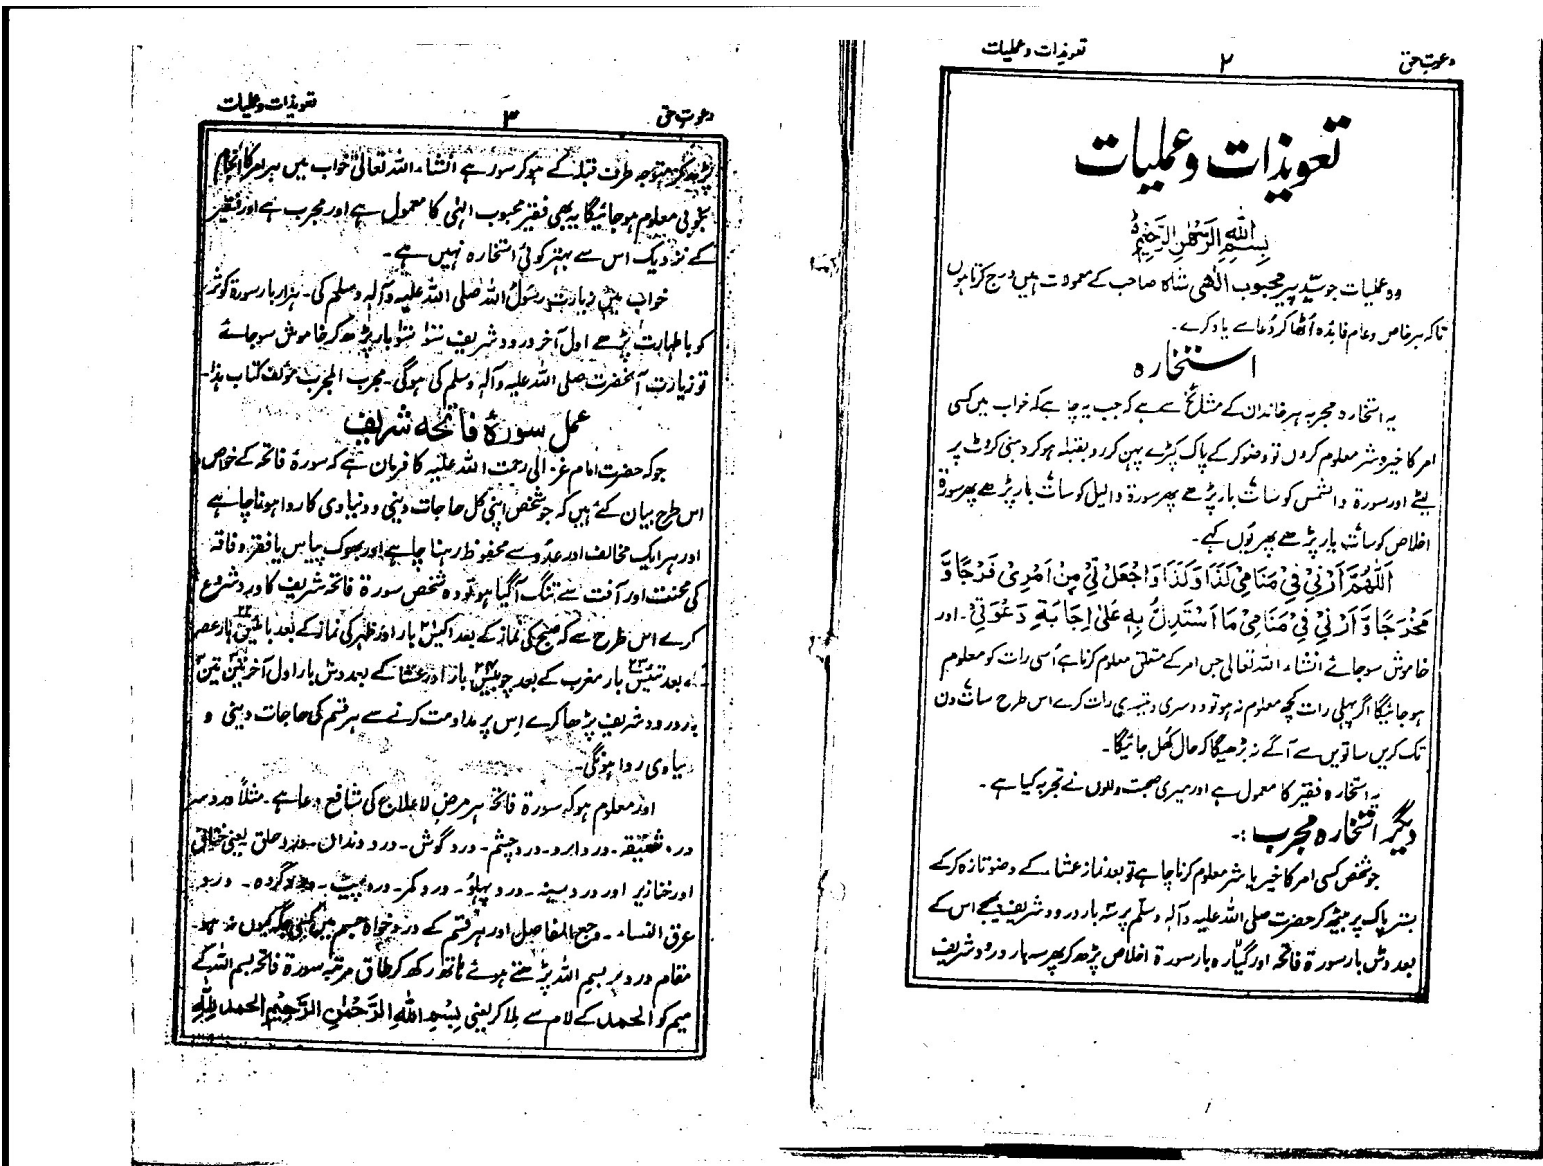 دعوتِ حق ۲ تعویذات و عملیات
تعویذات و عملیات
بِسْمِ اللّٰهِ الرَّحْمٰنِ الرَّحِیْمِ
وہ عملیات جو سیّد پیر محبوب الٰهی شاہ صاحب کے معمولات ہیں درج کرتا ہوں
تاکہ ہر خاص و عام فائدہ اُٹھا کر دُعا سے یاد کرے۔
استخارہ
یہ استخارہ مجربہ ہر خاندان کے مشائخ سے ہے کہ جب یہ چاہے کہ خواب میں کسی
امر کا خیر و شر معلوم کروں تو وضو کر کے پاک کپڑے پہن کر رو بقبلہ ہو کر دہنی کروٹ پر
لیٹے اور سورۃ والشمس کو سات بار پڑھے پھر سورۃ والیل کو سات بار پڑھے پھر سورۃ
اخلاص کو سات بار پڑھے پھر یُوں کہے۔
اَللّٰهُمَّ اَرِنِیْ فِیْ مَنَامِیْ كَذَا وَكَذَا وَاجْعَلْ لِّیْ مِنْ اَمْرِیْ فَرَجًا وَّ
مَخْرَجًا وَّ اَرِنِیْ فِیْ مَنَامِیْ مَا اَسْتَدِلُّ بِهٖ عَلٰی اِجَابَةِ دَعْوَتِیْ۔ اور
خاموش سو جائے انشاء اللہ تعالیٰ جس امر کے متعلق معلوم کرنا ہے اُسی رات کو معلوم
ہو جائیگا اگر پہلی رات کچھ معلوم نہ ہو تو دوسری و تیسری رات کرے اس طرح سات دن
تک کریں ساتویں سے آگے نہ بڑھیگا کہ حال کُھل جائیگا۔
یہ استخارہ فقیر کا معمول ہے اور میری صحبت والوں نے تجربہ کیا ہے۔
دیگر استخارہ مجرب :۔
جو شخص کسی امر کا خیر یا شر معلوم کرنا چاہے تو بعد نماز عشاء کے وضو تازہ کر کے
بستر پاک پر بیٹھ کر حضرت صلی اللہ علیہ وآلہ وسلّم پر سہ بار درود شریف بھیجے اس کے
بعد دس بار سورۃ فاتحہ اور گیارہ بار سورۃ اخلاص پڑھ کر پھر سہ بار درود شریف
دعوتِ حق ۳ تعویذات و عملیات
پڑھ کر متوجہ طرف قبلہ کے ہو کر سو رہے انشاء اللہ تعالیٰ خواب میں ہر امر کا انجام
بخوبی معلوم ہو جائیگا یہ بھی فقیر محبوب الٰہی کا معمول ہے اور مجرب ہے اور فقیر
کے نزدیک اس سے بہتر کوئی استخارہ نہیں ہے۔
خواب میں زیارت رسولُ اللہ صلی اللہ علیہ وآلہ وسلم کی۔ ہزار بار سورۃ کوثر
کو باطہارت پڑھے اول آخر درود شریف سَو سَو بار پڑھ کر خاموش سو جائے
تو زیارت آنحضرت صلی اللہ علیہ وآلہ وسلم کی ہوگی۔ مجرب المجرب مؤلف کتاب ہذا۔
عمل سورۂ فاتحہ شریف
جو کہ حضرت امام غزالی رحمت اللہ علیہ کا فرمان ہے کہ سورۃ فاتحہ کے خواص
اس طرح بیان کئے ہیں کہ جو شخص اپنی کل حاجات دینی و دنیاوی کا روا ہونا چاہے
اور ہر ایک مخالف اور عدُو سے محفوظ رہنا چاہے اور بھوک پیاس یا فقر و فاقہ
کی محنت اور آفت سے تنگ آگیا ہو تو وہ شخص سورۃ فاتحہ شریف کا ورد شروع
کرے اس طرح سے کہ صبح کی نماز کے بعد اکیس ۲۱ بار اور ظہر کی نماز کے بعد بائیس ۲۲ بار عصر
کے بعد تئیس ۲۳ بار مغرب کے بعد چوبیس ۲۴ بار اور عشا کے بعد دس بار اول آخر تین تین ۳
بار درود شریف پڑھا کرے اِس پر مداومت کرنے سے ہر قسم کی حاجات دینی و
دنیاوی روا ہونگی۔
اور معلوم ہو کہ سورۃ فاتحہ ہر مرض لا علاج کی شافع دعا ہے۔ مثلاً درد سر
درد شقیقہ۔ درد ابرو۔ درد چشم۔ درد گوش۔ درد دندان سوزد حلق یعنی خناق
اور خنازیر اور درد سینہ۔ درد پہلوُ۔ درد کمر۔ درد پیٹ۔ درد گردہ۔ درد
عرق النساء۔ وجع المفاصل اور ہر قسم کے درد خواہ جسم میں کسی جگہ کیوں نہ ہو۔
مقام درد پر بسم اللہ پڑھتے ہوئے ہاتھ رکھ کر طاق مرتبہ سورۃ فاتحہ بسم اللہ کے
میم کو الحمد کے لام سے ملا کر یعنی بِسْمِ اللّٰهِ الرَّحْمٰنِ الرَّحِیْمِ الحمد لِلّٰهِ